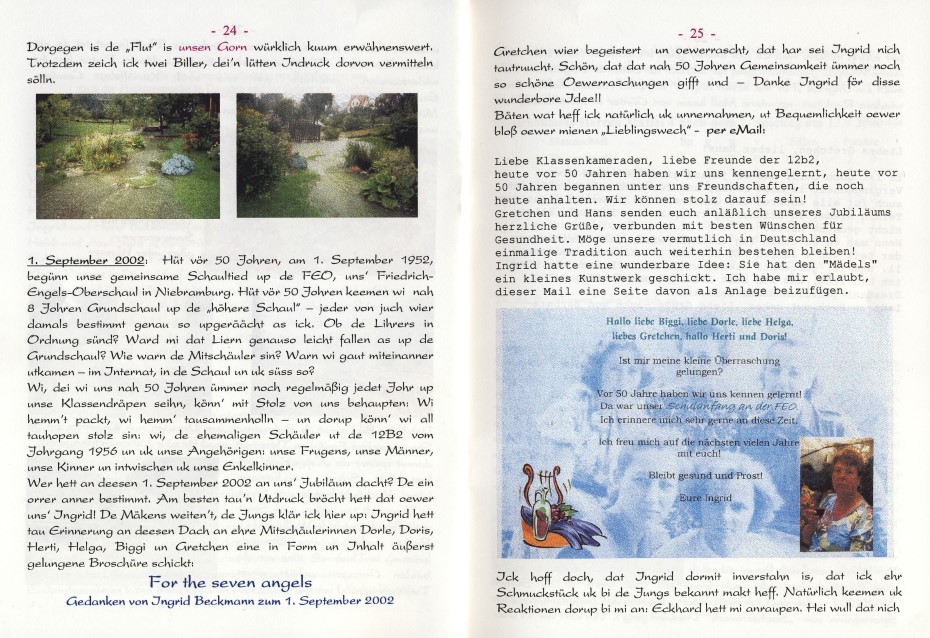 - 24 -
Dorgegen is de „Flut“ is unsen Gorn würklich kuum erwähnenswert.
Trotzdem zeich ick twei Biller, dei'n lütten Indruck dorvon vermitteln
sölln.
1. September 2002: Hüt vör 50 Johren, am 1. September 1952,
begünn unse gemeinsame Schaultied up de FEO, uns' Friedrich-
Engels-Oberschaul in Niebramburg. Hüt vör 50 Johren keemen wi nah
8 Johren Grundschaul up de „höhere Schaul“ – jeder von juch wier
damals bestimmt genau so upgeräächt as ick. Ob de Lihrers in
Ordnung sünd? Ward mi dat Liern genauso leicht fallen as up de
Grundschaul? Wie warn de Mitschäuler sin? Warn wi gaut miteinanner
utkamen – im Internat, in de Schaul un uk süss so?
Wi, dei wi uns nah 50 Johren ümmer noch regelmäßig jedet Johr up
unse Klassendräpen seihn, könn' mit Stolz von uns behaupten: Wi
hemn't packt, wi hemn' tausammenholln – un dorup könn' wi all
tauhopen stolz sin: wi, de ehemaligen Schäuler ut de 12B2 vom
Johrgang 1956 un uk unse Angehörigen: unse Frugens, unse Männer,
unse Kinner un intwischen uk unse Enkelkinner.
Wer hett an deesen 1. September 2002 an uns' Jubiläum dacht? De ein
orrer anner bestimmt. Am besten tau'n Utdruck bröcht hett dat oewer
uns' Ingrid! De Mäkens weiten't, de Jungs klär ick hier up: Ingrid hett
tau Erinnerung an deesen Dach an ehre Mitschäulerinnen Dorle, Doris,
Herti, Helga, Biggi un Gretchen eine in Form un Inhalt äußerst
gelungene Broschüre schickt:
For the seven angels
Gedanken von Ingrid Beckmann zum 1. September 2002
- 25 -
Gretchen wier begeistert un oewerrascht, dat har sei Ingrid nich
tautruucht. Schön, dat dat nah 50 Johren Gemeinsamkeit ümmer noch
so schöne Oewerraschungen gifft und – Danke Ingrid för disse
wunderbore Idee!!
Bäten wat heff ick natürlich uk unnernahmen, ut Bequemlichkeit oewer
bloß oewer mienen „Lieblingswech“ - per eMail:
Liebe Klassenkameraden, liebe Freunde der 12b2,
heute vor 50 Jahren haben wir uns kennengelernt, heute vor
50 Jahren begannen unter uns Freundschaften, die noch
heute anhalten. Wir können stolz darauf sein!
Gretchen und Hans senden euch anläßlich unseres Jubiläums
herzliche Grüße, verbunden mit besten Wünschen für
Gesundheit. Möge unsere vermutlich in Deutschland
einmalige Tradition auch weiterhin bestehen bleiben!
Ingrid hatte eine wunderbare Idee: Sie hat den "Mädels"
ein kleines Kunstwerk geschickt. Ich habe mir erlaubt,
dieser Mail eine Seite davon als Anlage beizufügen.
Hallo liebe Biggi, liebe Dorle, liebe Helga,
liebes Gretchen, hallo Herti und Doris!
Ist mir meine kleine Überraschung
gelungen?
Vor 50 Jahre haben wir uns kennen gelernt!
Da war unser Schulanfang an der FEO.
Ich erinnere mich sehr gerne an diese Zeit.
Ich freu mich auf die nächsten vielen Jahre
mit euch!
Bleibt gesund und Prost!
Eure Ingrid
Ick hoff doch, dat Ingrid dormit inverstahn is, dat ick ehr
Schmuckstück uk bi de Jungs bekannt makt heff. Natürlich keemen uk
Reaktionen dorup bi mi an: Eckhard hett mi anraupen. Hei wull dat nich